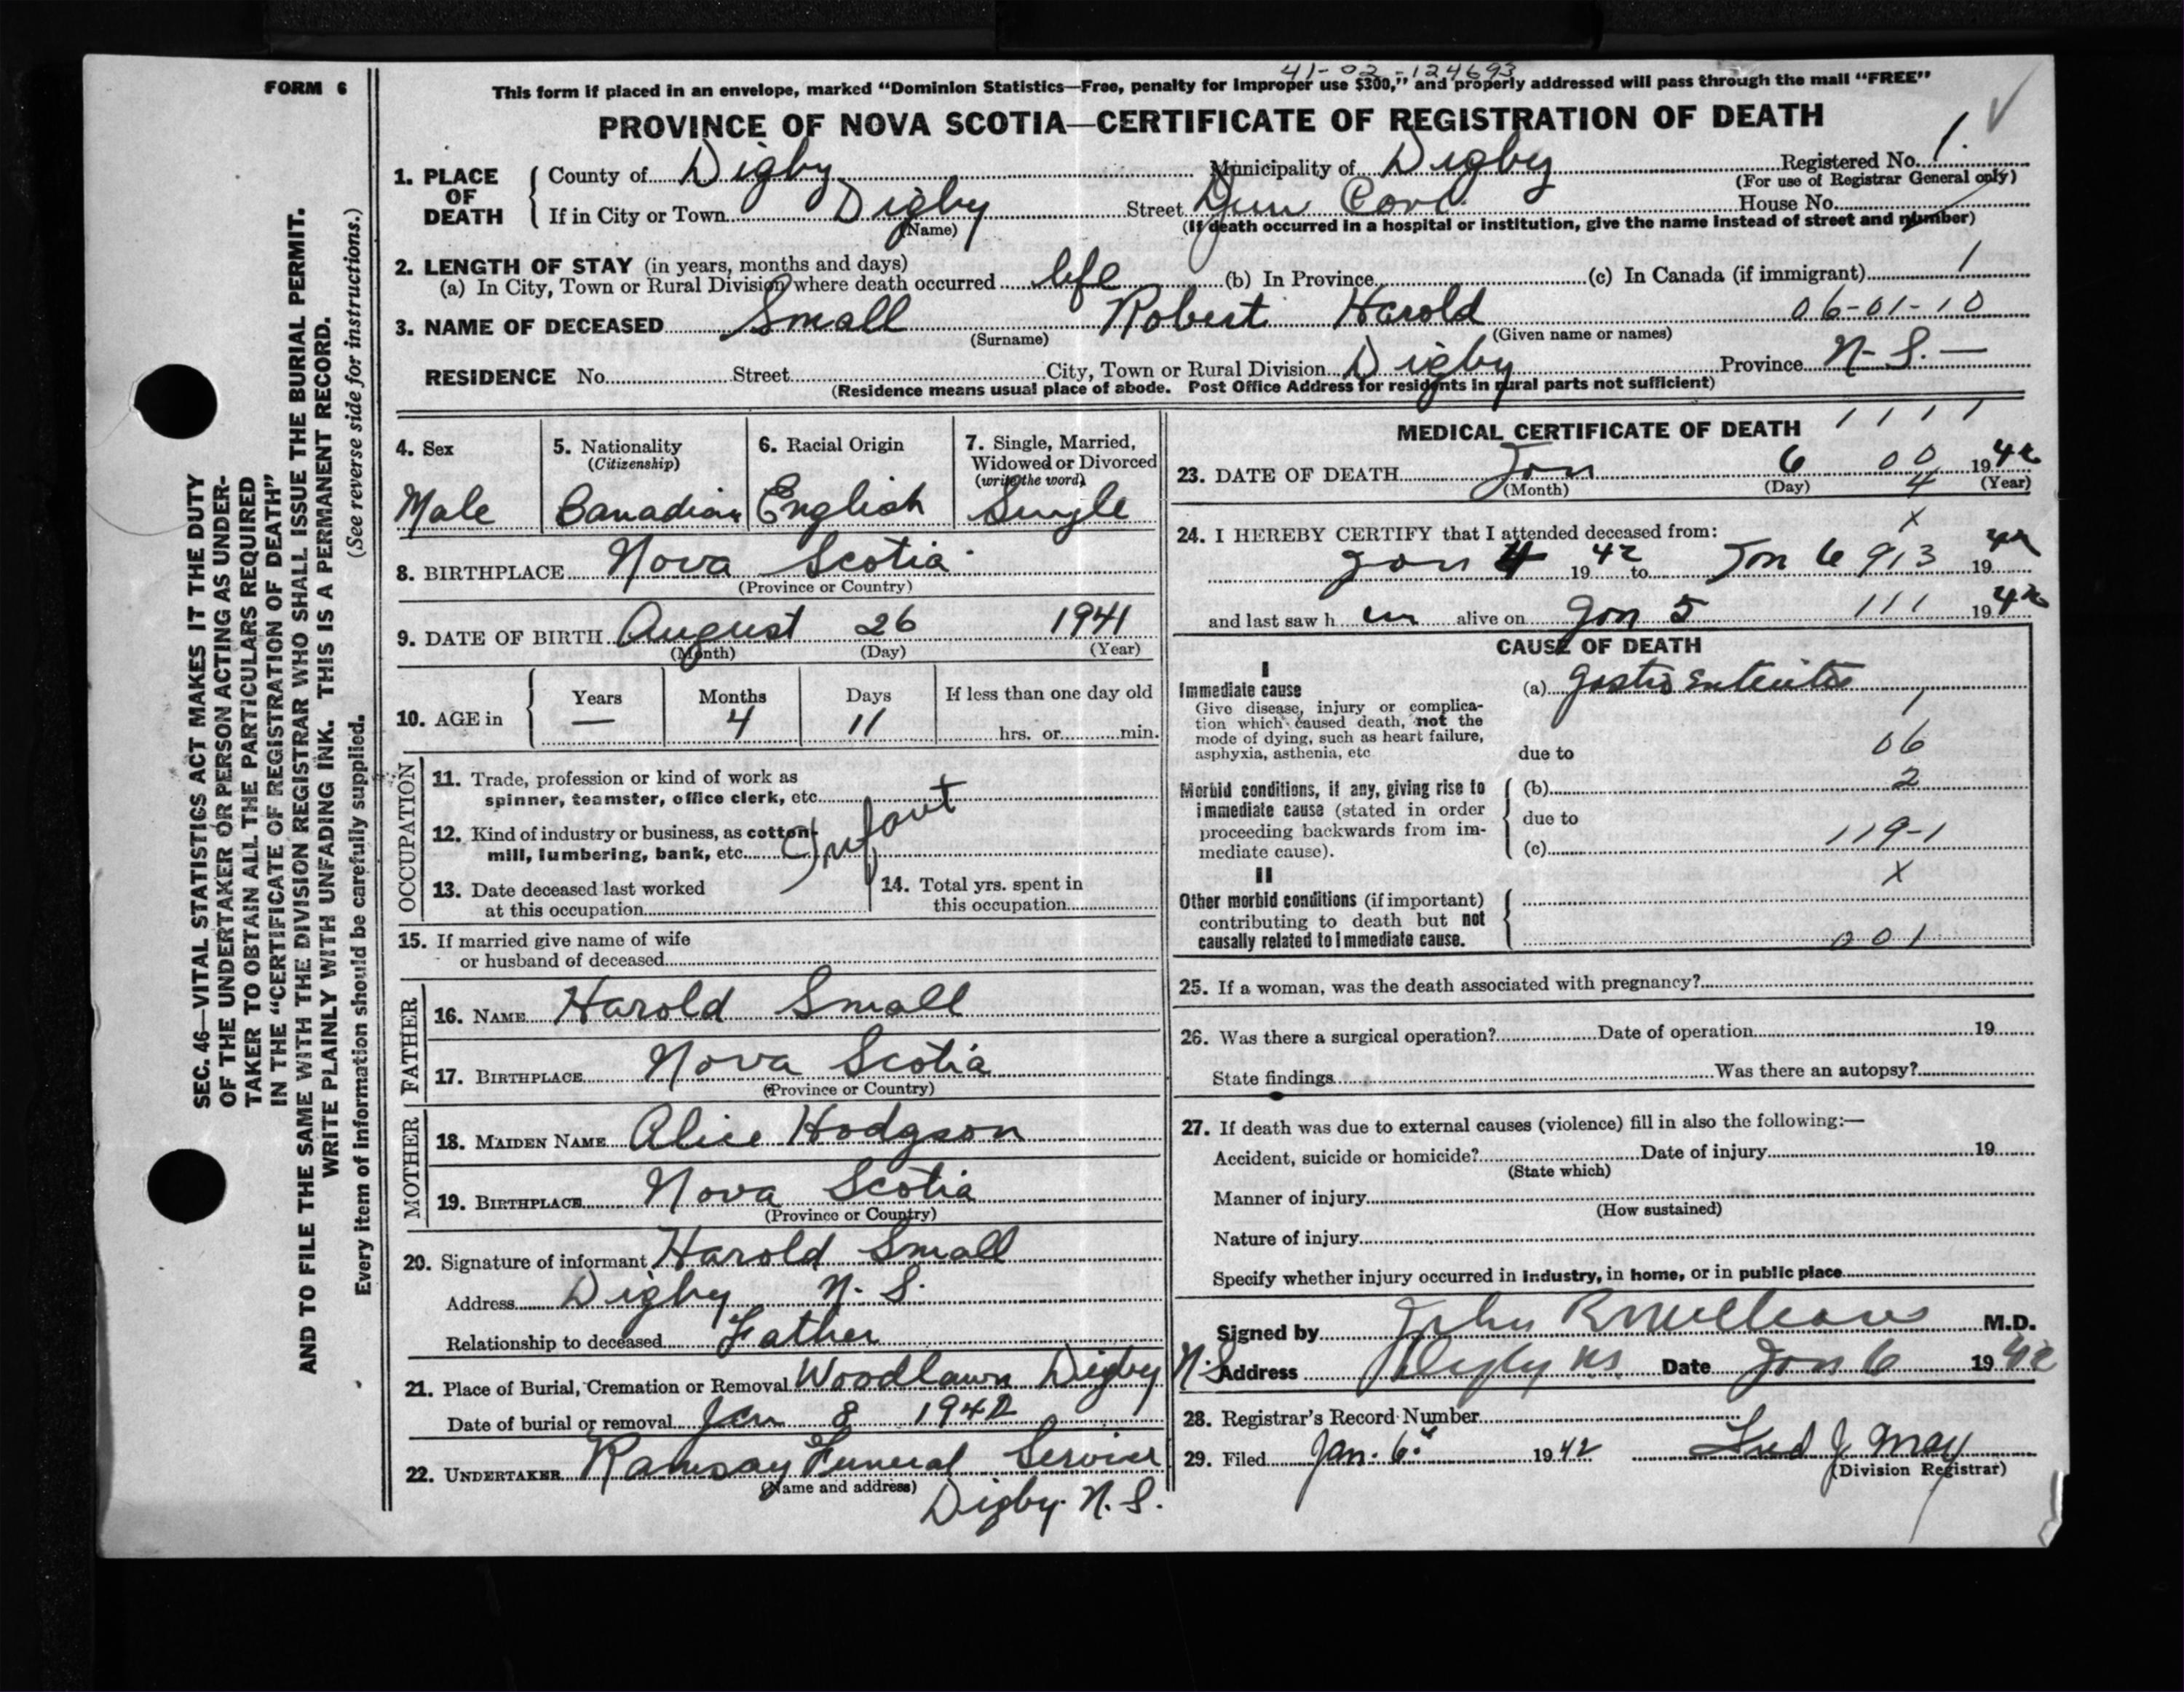 41-02-124693
FORM 6
This form if placed in an envelope, marked "Dominion Statistics—Free, penalty for improper use $300," and properly addressed will pass through the mail "FREE"
PROVINCE OF NOVA SCOTIA—CERTIFICATE OF REGISTRATION OF DEATH
1. PLACE OF DEATH
County of Digby Municipality of Digby Registered No. 1.
(For use of Registrar General only)
If in City or Town Digby Street House No.
(Name) (If death occurred in a hospital or institution, give the name instead of street and number)
2. LENGTH OF STAY (in years, months and days)
(a) In City, Town or Rural Division where death occurred life (b) In Province (c) In Canada (if immigrant) 1
3. NAME OF DECEASED Small Robert Harold 06-01-10
(Surname) (Given name or names)
RESIDENCE No. Street City, Town or Rural Division Digby Province N-S.—
(Residence means usual place of abode. Post Office Address for residents in rural parts not sufficient)
4. Sex
Male
5. Nationality
(Citizenship)
Canadian
6. Racial Origin
English
7. Single, Married,
Widowed or Divorced
(write the word)
Single
8. BIRTHPLACE Nova Scotia
(Province or Country)
9. DATE OF BIRTH August 26 1941
(Month) (Day) (Year)
10. AGE in
Years Months Days If less than one day old
— 4 11 hrs. or min.
OCCUPATION
11. Trade, profession or kind of work as
spinner, teamster, office clerk, etc.
12. Kind of industry or business, as cotton-
mill, lumbering, bank, etc. Infant
13. Date deceased last worked
at this occupation
14. Total yrs. spent in
this occupation
15. If married give name of wife
or husband of deceased
FATHER
16. NAME Harold Small
17. BIRTHPLACE Nova Scotia
(Province or Country)
MOTHER
18. MAIDEN NAME Alice Hodgson
19. BIRTHPLACE Nova Scotia
(Province or Country)
20. Signature of informant Harold Small
Address Digby N. S.
Relationship to deceased Father
21. Place of Burial, Cremation or Removal Woodlawn Digby N.S
Date of burial or removal Jan 8 1942
22. UNDERTAKER Ramsay Funeral Service
(Name and address) Digby. N. S.
MEDICAL CERTIFICATE OF DEATH 1 1 1 1
23. DATE OF DEATH Jan 6 00 1942
(Month) (Day) 4 (Year)
24. I HEREBY CERTIFY that I attended deceased from: X
Jan 4 1942 to Jan 6 913 1942
and last saw h im alive on Jan 5 111 1942
CAUSE OF DEATH
I
Immediate cause
Give disease, injury or complica-
tion which caused death, not the
mode of dying, such as heart failure,
asphyxia, asthenia, etc
(a) Gastro Enteritis
1
due to 06
Morbid conditions, if any, giving rise to
immediate cause (stated in order
proceeding backwards from im-
mediate cause).
(b) 2
due to
(c) 119-1
II X
Other morbid conditions (if important)
contributing to death but not
causally related to immediate cause.
001
25. If a woman, was the death associated with pregnancy?
26. Was there a surgical operation? Date of operation 19
State findings Was there an autopsy?
27. If death was due to external causes (violence) fill in also the following:—
Accident, suicide or homicide? Date of injury 19
(State which)
Manner of injury
(How sustained)
Nature of injury
Specify whether injury occurred in industry, in home, or in public place
Signed by John M.D.
Address Digby N.S. Date Jan 6 1942
28. Registrar's Record Number
29. Filed Jan. 6. 1942 Fred J. May
(Division Registrar)
SEC. 46—VITAL STATISTICS ACT MAKES IT THE DUTY
OF THE UNDERTAKER OR PERSON ACTING AS UNDER-
TAKER TO OBTAIN ALL THE PARTICULARS REQUIRED
IN THE "CERTIFICATE OF REGISTRATION OF DEATH"
AND TO FILE THE SAME WITH THE DIVISION REGISTRAR WHO SHALL ISSUE THE BURIAL PERMIT.
WRITE PLAINLY WITH UNFADING INK. THIS IS A PERMANENT RECORD.
Every item of information should be carefully supplied. (See reverse side for instructions.)